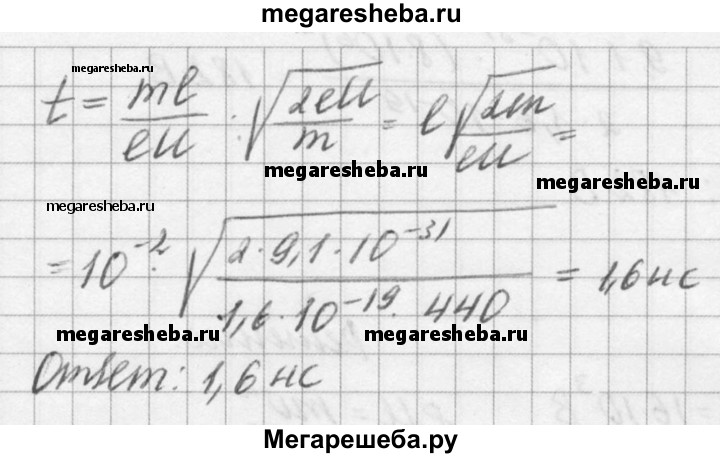 megaresheba.ru
megaresheba.ru
t = ml/eU : √(2eU/m) = l √(2m/eU) =
megaresheba.ru
megaresheba.ru
megaresheba.ru
= 10⁻² · √(2·9,1·10⁻³¹/1,6·10⁻¹⁹·440) = 1,6 нс
megaresheba.ru
megaresheba.ru
Ответ: 1,6 нс
Мегарешеба.ру